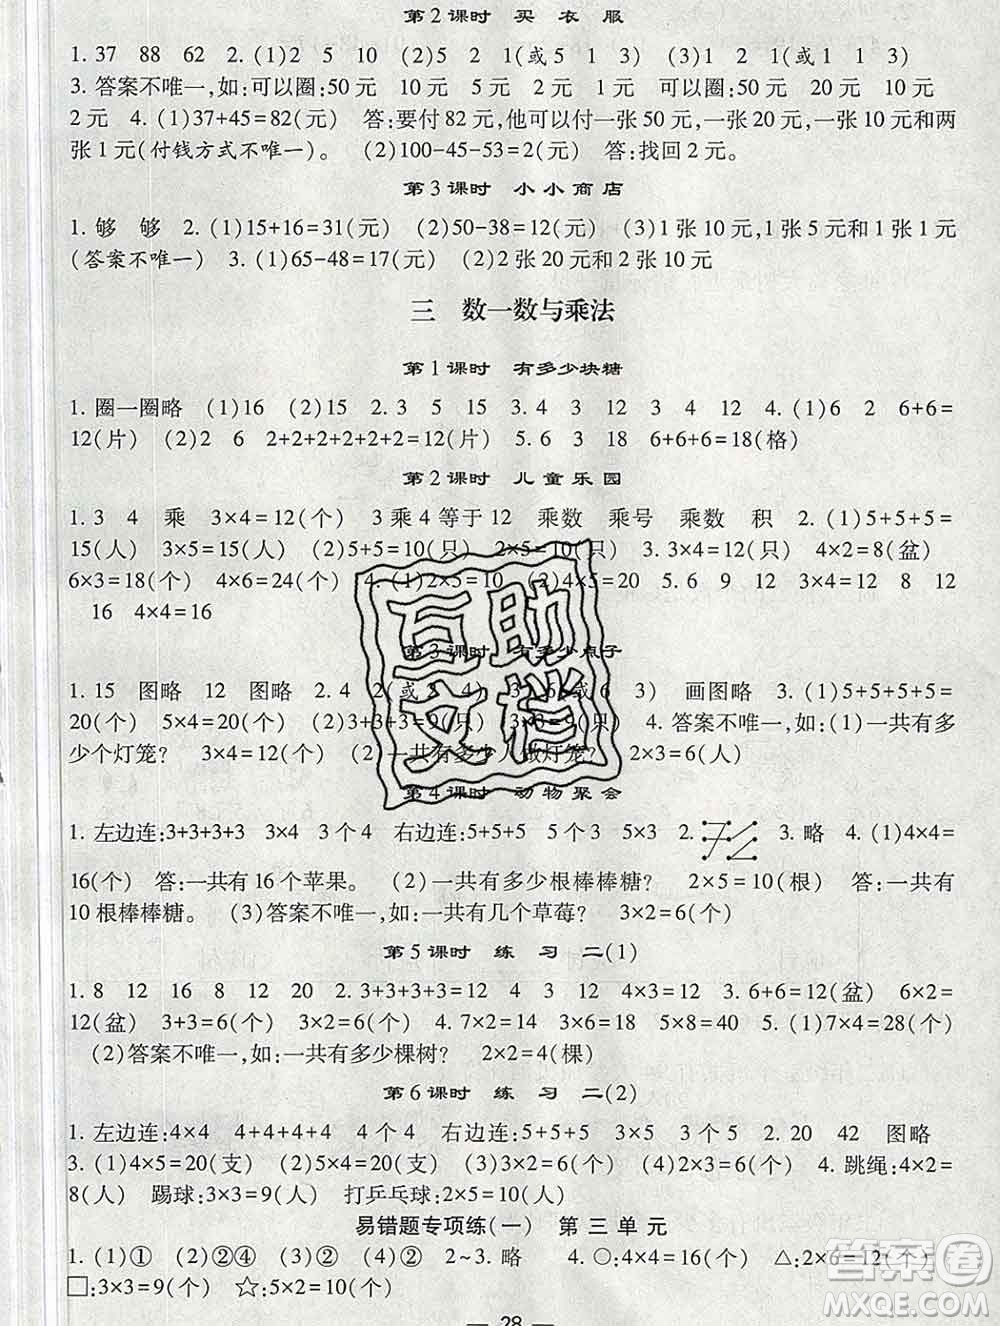 第2课时 买 衣 服
1. 37 88 62 2. (1)2 5 10 (2)5 2 1(或5 1 3) (3)1 2 1(或1 1 3)
3. 答案不唯一,如:可以圈:50元 10元 5元 5元 2元 可以圈:50元 20元 10元
2元 4. (1)37+45=82(元) 答:要付82元,他可以付一张50元,一张20元,一张10元和两
张1元(付钱方式不唯一)。 (2)100-45-53=2(元) 答:找回2元。
第3课时 小小商店
1. 够 够 2. (1)15+16=31(元) (2)50-38=12(元) (3)1张10元,1张5元,3张1元
(答案不唯一) 3. (1)65-48=17(元) (2)2张20元和2张10元
三 数一数与乘法
第1课时 有多少块糖
1. 圈一圈略 (1)16 (2)15 2. 3 5 15 3. 4 3 12 3 4 12 4. (1)6 2 6+6=
12(片) (2)2 6 2+2+2+2+2+2=12(片) 5. 6 3 18 6+6+6=18(格)
第2课时 儿童乐园
1. 3 4 乘 3×4=12(个) 3乘4等于12 乘数 乘号 乘数 积 2. (1)5+5+5=
15(人) 3×5=15(人) (2)5+5=10(只) 2×5=10(只) 3. 3×4=12(只) 4×2=8(盆)
6×3=18(个) 4×6=24(个) 4. (1)2×5=10 (2)4×5=20 5. 6 9 12 3×4=12 8 12
16 4×4=16
第3课时 有多少点子
1. 15 图略 12 图略 2. 4 2(或2 4) 3 6(或6 3) 画图略 3. (1)5+5+5+5=
20(个) 5×4=20(个) (2)3+3+3=9(只) 3×3=9(只) 4. 答案不唯一,如:(1)一共有多
少个灯笼? 3×4=12(个) (2)一共有多少人做灯笼? 2×3=6(人)
第4课时 动物聚会
1. 左边连:3+3+3+3 3×4 3个4 右边连:5+5+5 5个3 5×3 2. 3. 略 4. (1)4×4=
16(个) 答:一共有16个苹果。 (2)一共有多少根棒棒糖? 2×5=10(根) 答:一共有
10根棒棒糖。 (3)答案不唯一,如:一共有几个草莓? 3×2=6(个)
第5课时 练 习 二(1)
1. 8 12 16 8 12 20 2. 3+3+3+3=12 4 3 12 4×3=12 3. 6+6=12(盆) 6×2=
12(盆) 3+3=6(个) 3×2=6(个) 4. 7×2=14 3×5=15 5×8=40 5. (1)7×4=28(个)
(2)答案不唯一,如:一共有多少棵树? 2×2=4(棵)
第6课时 练 习 二(2)
1. 左边连:4×4 4+4+4+4 4个4 右边连:5+5+5 3×5 3个5 2. 20 42 图略
3. (1)4×5=20(支) (2)4×5=20(个) (3)5×5=25(个) (4)2×3=6(个) 4. 跳绳:4×2=
8(人) 踢球:3×3=9(人) 打乒乓球:2×5=10(人)
易错题专项练(一) 第三单元
1. (1)① (2)②④ (3)② (4)② 2~3. 略 4. ○:4×4=16(个) △:2×6=12(个)
□:3×3=9(个) ☆:5×2=10(个)
— 28 —
互助
文档
答案圈
MXQE.COM